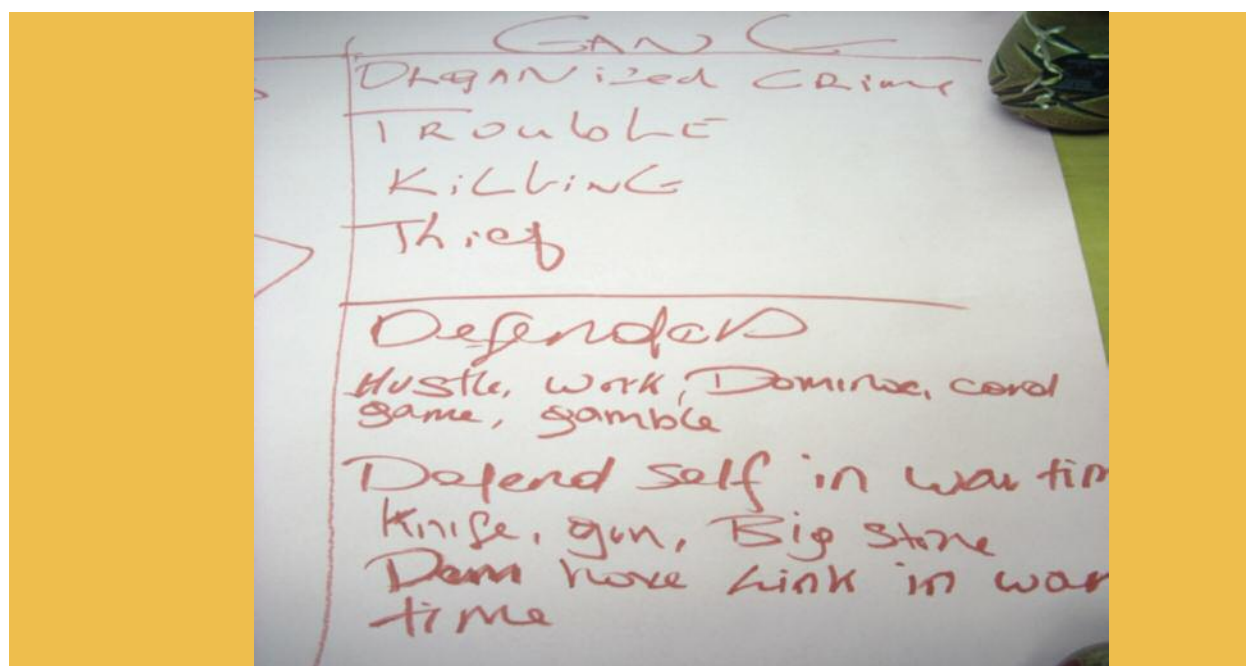 GANG
ORGANized CRime
TROubLE
KiLLiNG
Thief
Defenders
Hustle, work, Dominoe, card
game, gamble
Defend self in war tim
Knife, gun, Big stone
Dem have Link in war
time